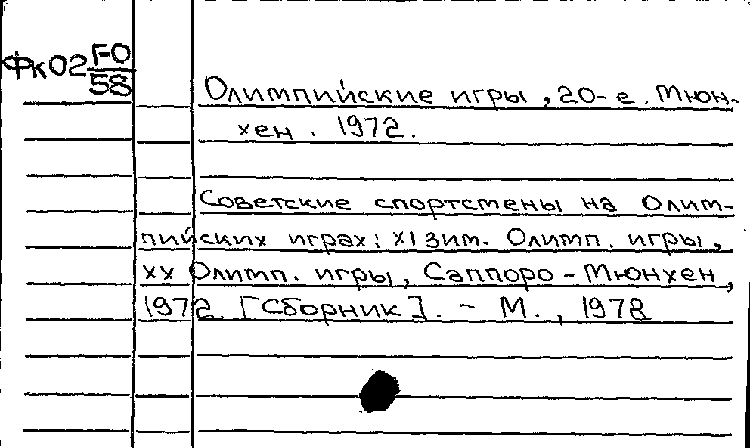 Фк02 FO
58
Олимпийские игры, 20-е. Мюн-
хен. 1972.
Советские спортсмены на Олим-
пийских играх: XI зим. Олимп. игры,
XX Олимп. игры, Саппоро - Мюнхен,
1972. [Сборник]. - М., 1972